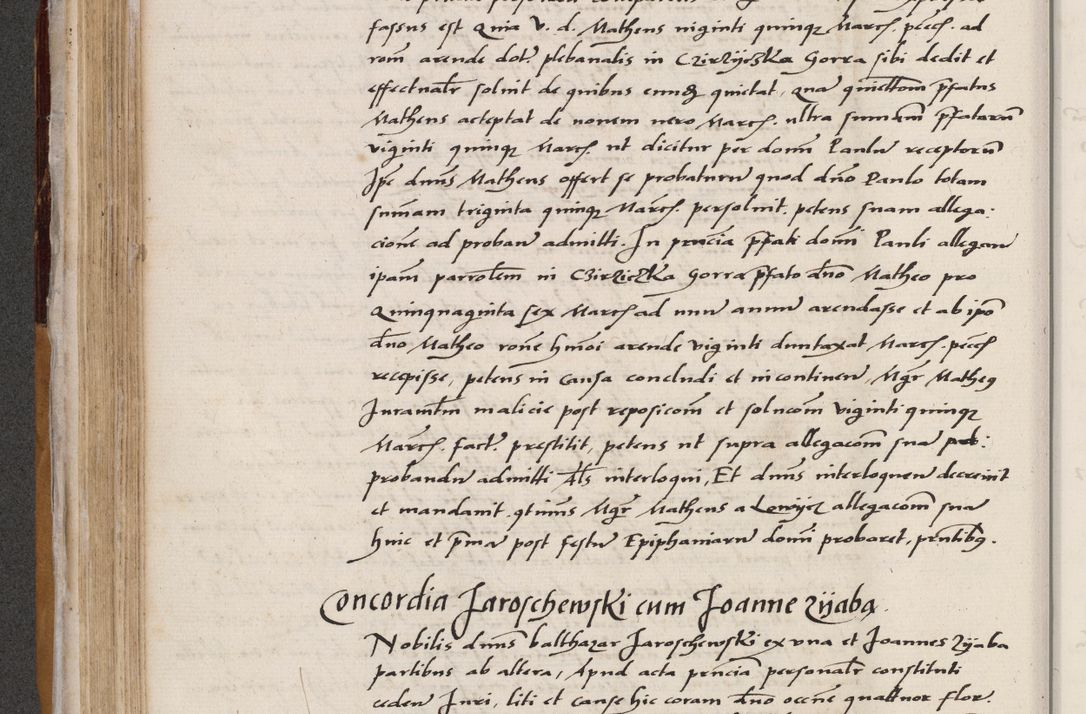 fassus est Quia V. d. Matheus viginti quinq̷ Marcȝ. pecȝ. ad
rom̄ arende dot. plebanalis in Czirzyczka Gorra sibi dedit et
effectualr̄ soluit de quibus eundꝫ quietat, qua quiettom̄ p̄fatus
Matheus acceptat de nonem vero Marcȝ. ultra summam p̄fatarum̄
viginti quinq̷ Marcȝ. ut dicitur per dom̄ Paulu receptorum̄
Ip̄e dn̄us Matheus offert se probaturu quod dn̄o Paulo totam
sum̄am triginta quinq̷ Marcȝ. persoluit, petens suam allega:
cione ad proban̄ admitti. In pn̄cia p̄fati dom̄i Pauli allegan̄
ipam̄ parrocłem in Czirziczka Gorra p̄fato dn̄o Matheo pro
Quinquaginta sex Marcȝ ad unu annu arendasse et ab ip̄o
dn̄o Matheo rone hm̄oi arende viginti duntaxat Marcȝ. pecȝ
recepisse, petens in causa concludi et incontinen̄, Mgr̄ Matheꝯ
Iuramt̄m malicie post reposicom̄ et solucom̄ viginti quinq̷
Marcȝ. fact. prestitit, petens ut supra allegacom̄ sua
probandu admitti Als̄ interloqui, Et dn̄us interloquen̄ decreuit
et mandauit, qtinus Mgr̄ Matheus a Lowijcz allegacom̄ sua
huic et p̄ma post festu Epiphaniaru domi probaret, pn̄tibꝯ.
Concordia Jaroschewski cum Joanne Zijaba.
Nobilis dn̄us balthazar Jaroschewski ex vna et Joannes Zijaba
partibus ab altera, Apud acta pn̄cia personalr̄ constituti
ceden̄ Iuri, liti et cause hic coram dn̄o occne quattuor flor.